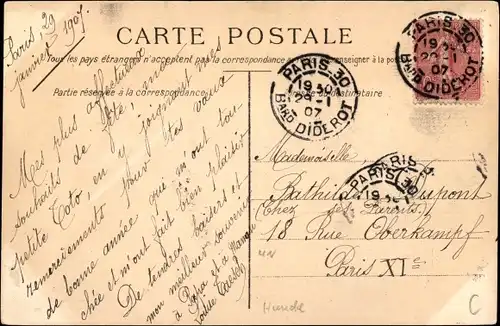 Paris 29
janvier 1907
CARTE POSTALE
Tous les pays étrangers n'acceptent pas la correspondance au à la poste)
Partie réservée à la correspondance
destinataire
PARIS 30
19 30
29 - 1
07
BARD DIDEROT
PARIS 30
19 30
29 - 1
07
BARD DIDEROT
PARIS
PARIS 30
Mes plus affectueux
souhaits de fête, ma
petite Toto en y joignant mes
remerciements pour tes vœux
de bonne année qui m'ont tou-
chée et m'ont fait bien plaisir
De tendres baisers et
mon meilleur souvenir
à Papa et à Maman
Mademoiselle
Bathilde Dupont
Chez ses Parents
18 Rue Oberkampf
Paris XIe
C